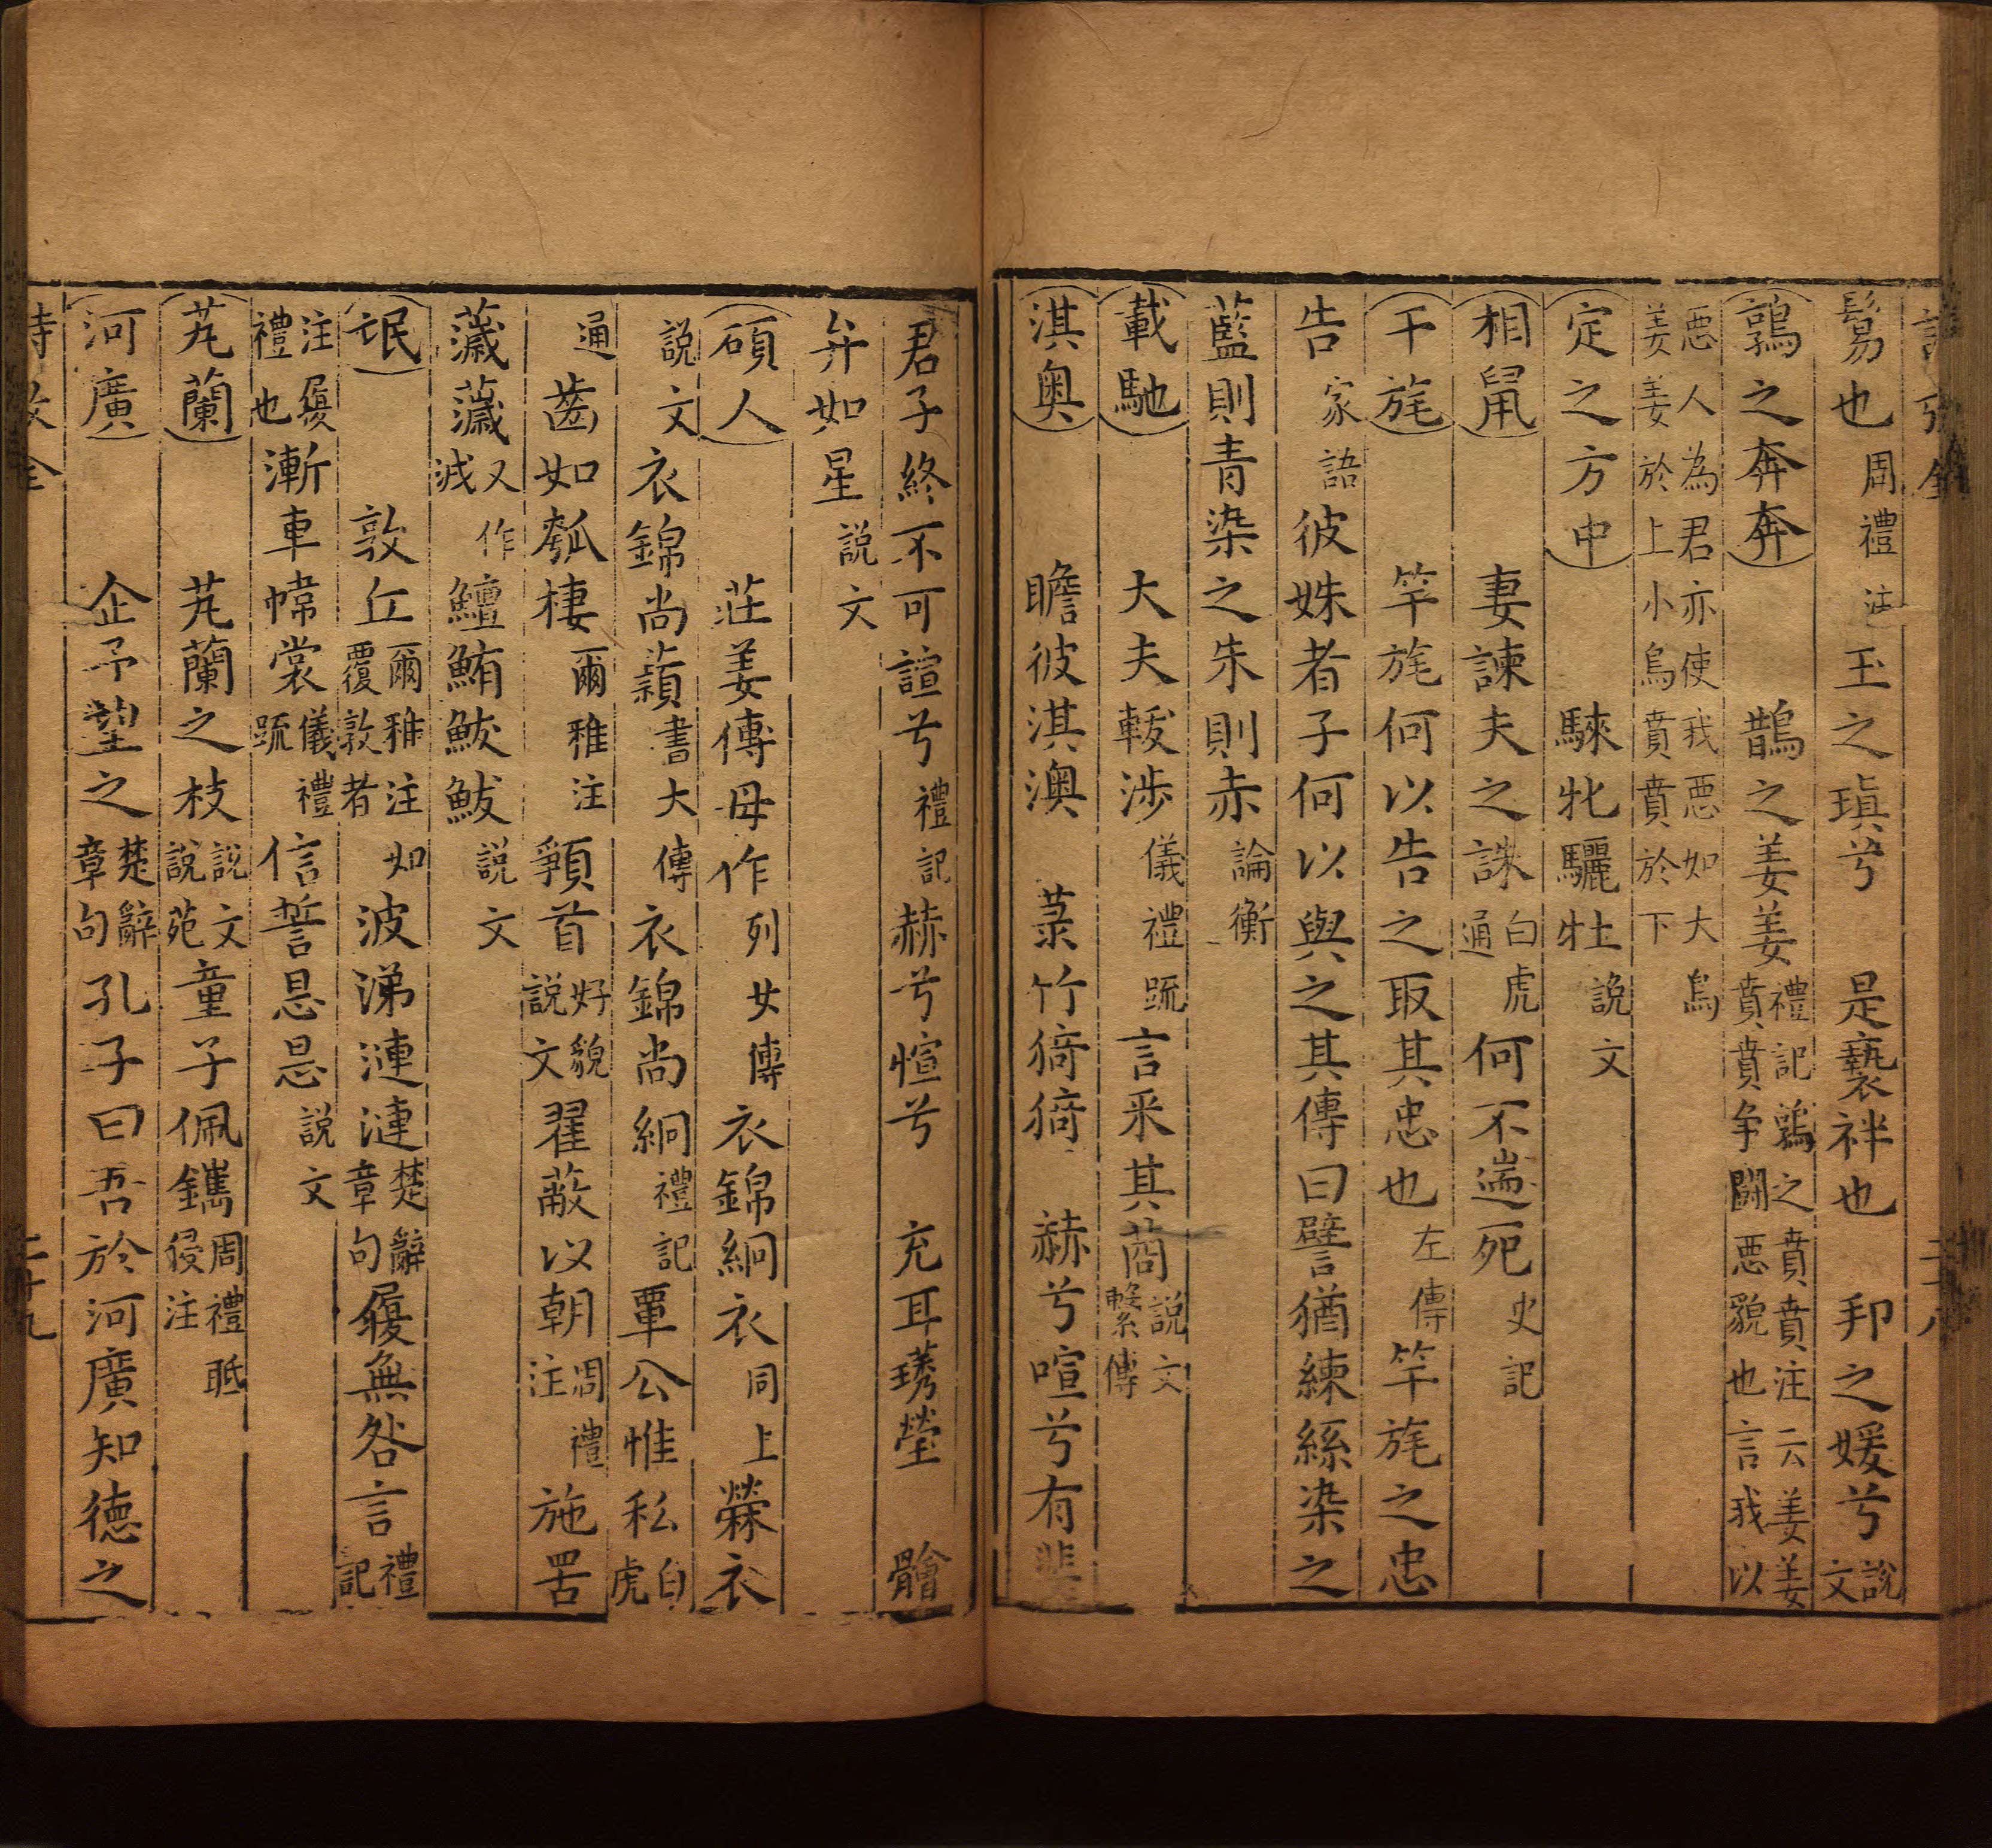 鬄也周禮注玉之瑱兮　是褻袢也　邦之媛兮說文
鶉之奔奔　鵲之姜姜禮記鶉之賁賁注云姜姜賁賁争鬪惡貌也言我以
惡人為君亦使我惡如大鳥姜姜於上小鳥賁賁於下
定之方中　騋牝驪牡說文
相鼠　妻諫夫之誅白虎通何不遄死史記
干旄　竿旄何以告之取其忠也左傳竿旄之忠
告家語彼姝者子何以與之其傳曰譬猶練絲染之
藍則青染之朱則赤論衡
載馳　大夫軷涉儀禮䟽言采其莔說文繫傳
淇奥　瞻彼淇澳　菉竹猗猗　赫兮喧兮有
君子終不可諠兮禮記赫兮愃兮　充耳琇瑩　䯤
弁如星說文
碩人　莊姜傅母作列女傳衣錦絅衣同上䌹衣
說文衣錦尚蘔書大傳衣錦尚絅禮記覃公惟私白虎
通齒如瓠棲爾雅注䫌首好貌說文翟蔽以朝周禮注施罟
薉薉又作濊鱣鮪鮁鮁說文
氓　敦丘爾雅注覆敦者如波涕漣漣楚辭章句履無咎言禮記
注履禮也漸車幃裳儀禮䟽信誓悬悬說文
芄蘭　芄蘭之枝說文說苑童子佩鑴周禮眂祲注
河廣　企予朢之楚辭章句孔子曰吾於河廣知德之